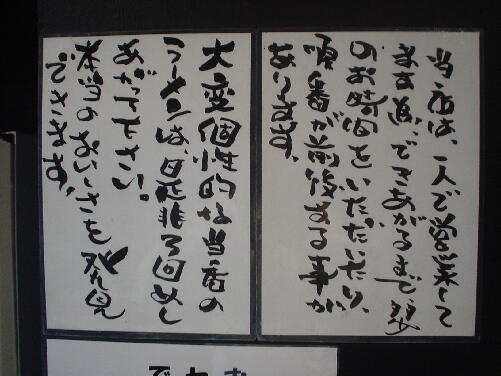 当店は、一人で営業して
ます為、できあがるまで少々
のお時間をいただいたり、
順番が前後する事が
あります。
大変個性的な当店の
ラーメンは、是非3回めし
あがって下さい。
本当のおいしさを発見
できます。